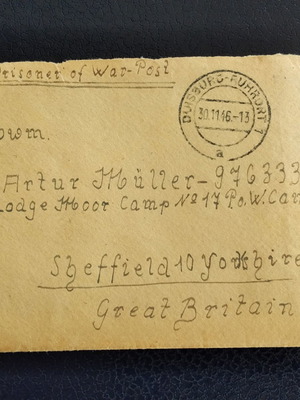 Prisoner of War-Post
DUISBURG-RUHRORT 1
30.11.46.-13
a
owm.
Artur Müller - 976333
Lodge Moor Camp No 17 P.o.W. Cam
Sheffield 10 Yorkshire
Great Britain